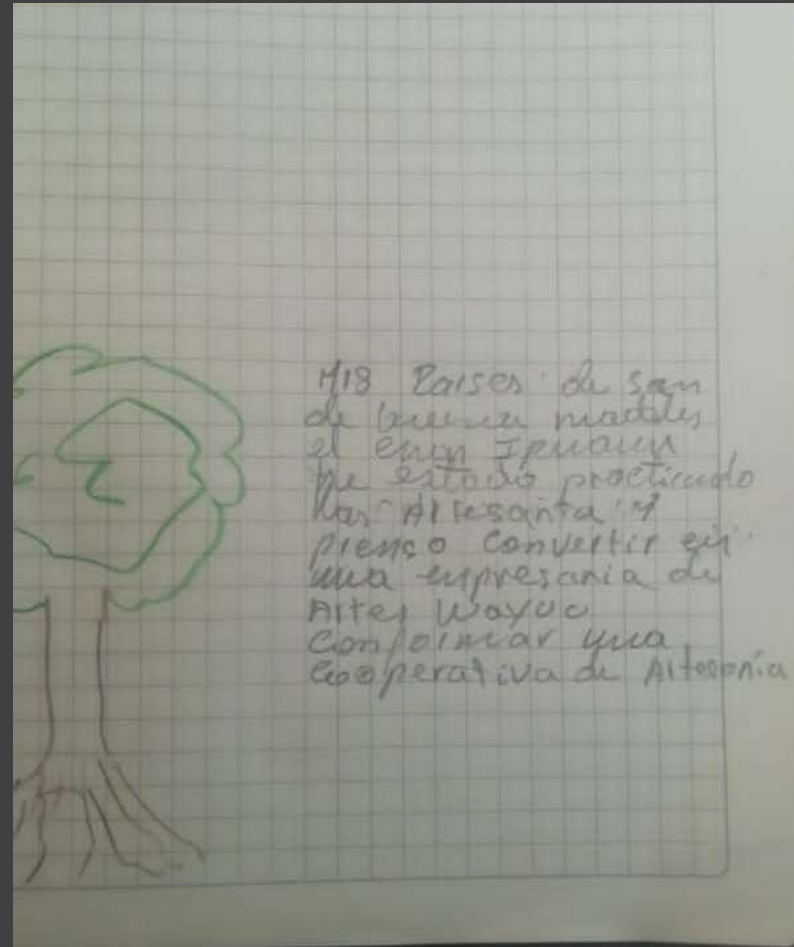 M18 Raises de san
de buena madales
el
he estado practicado
las Artesanta Y
pienso Convertir en
una empresaria de
Artes Wayuc
Conformar una
Cooperativa de Artesania